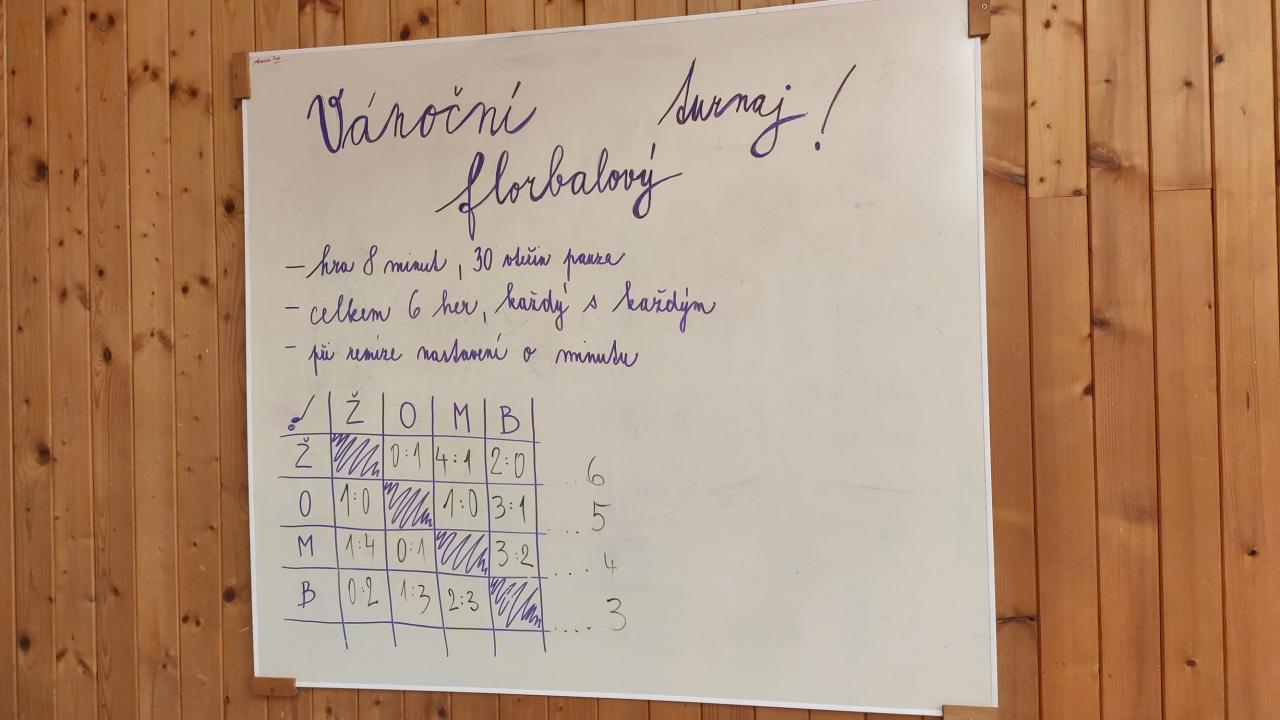 Vánoční turnaj!
florbalový
- hra 8 minut, 30 vteřin pauza
- celkem 6 her, každý s každým
- při remíze nastavení o minutu
Ž O M B
Ž 0:1 4:1 2:0 ... 6
O 1:0 1:0 3:1 ... 5
M 1:4 0:1 3:2 ... 4
B 0:2 1:3 2:3 .... 3